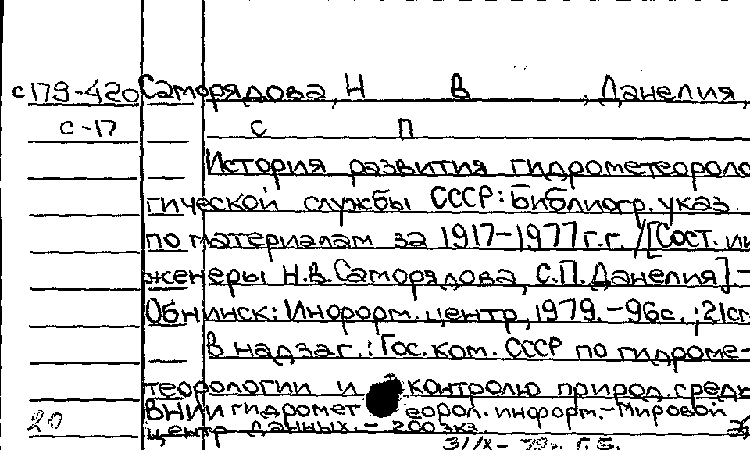 с179-420 Саморядова, Н В , Данелия,
с-17 С П
История развития гидрометеороло
гической службы СССР: Библиогр. указ.
по материалам за 1917-1977 г.г. /[Сост. ин
женеры Н.В. Саморядова, С.П. Данелия] -
Обнинск: Информ. центр, 1979. - 96с. ; 21см
В надзаг.: Гос. ком. СССР по гидроме-
теорологии и контролю природ. среды
ВНИИ гидромет еорол. информ. - Мировой
20 центр данных. - 200 экз.
31/X-79г. Г.Б.